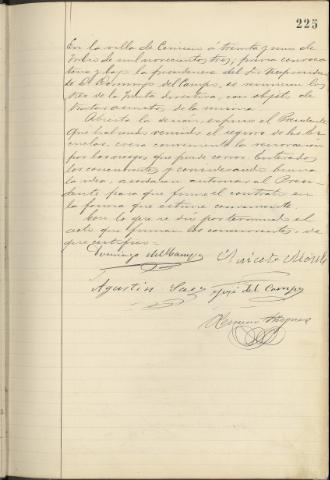 225
En la villa de Camuno a treinta y uno de
Julio de mil novecientos tres, primera convoca
toria y bajo la presidencia del Sr. Vicepresidente
de D. Domingo del Campo, se reunieron los
Sres de la Junta directiva, con objeto de
tratar asuntos de la misma.
Abierta la sesión, expuso el Presidente
que habiendo vencido el seguro de las Es
cuelas, creía conveniente la renovación
por los riesgos que puede correr. Enterados
los concurrentes y considerando buena
la idea, acordaron autorizar al Presi
dente para que firme el contrato en
la forma que estime conveniente.
Con lo que se dió por terminada el
acto que firman los concurrentes, de
que certifico.
Domingo del Campo
Agustin Saez José del Campo